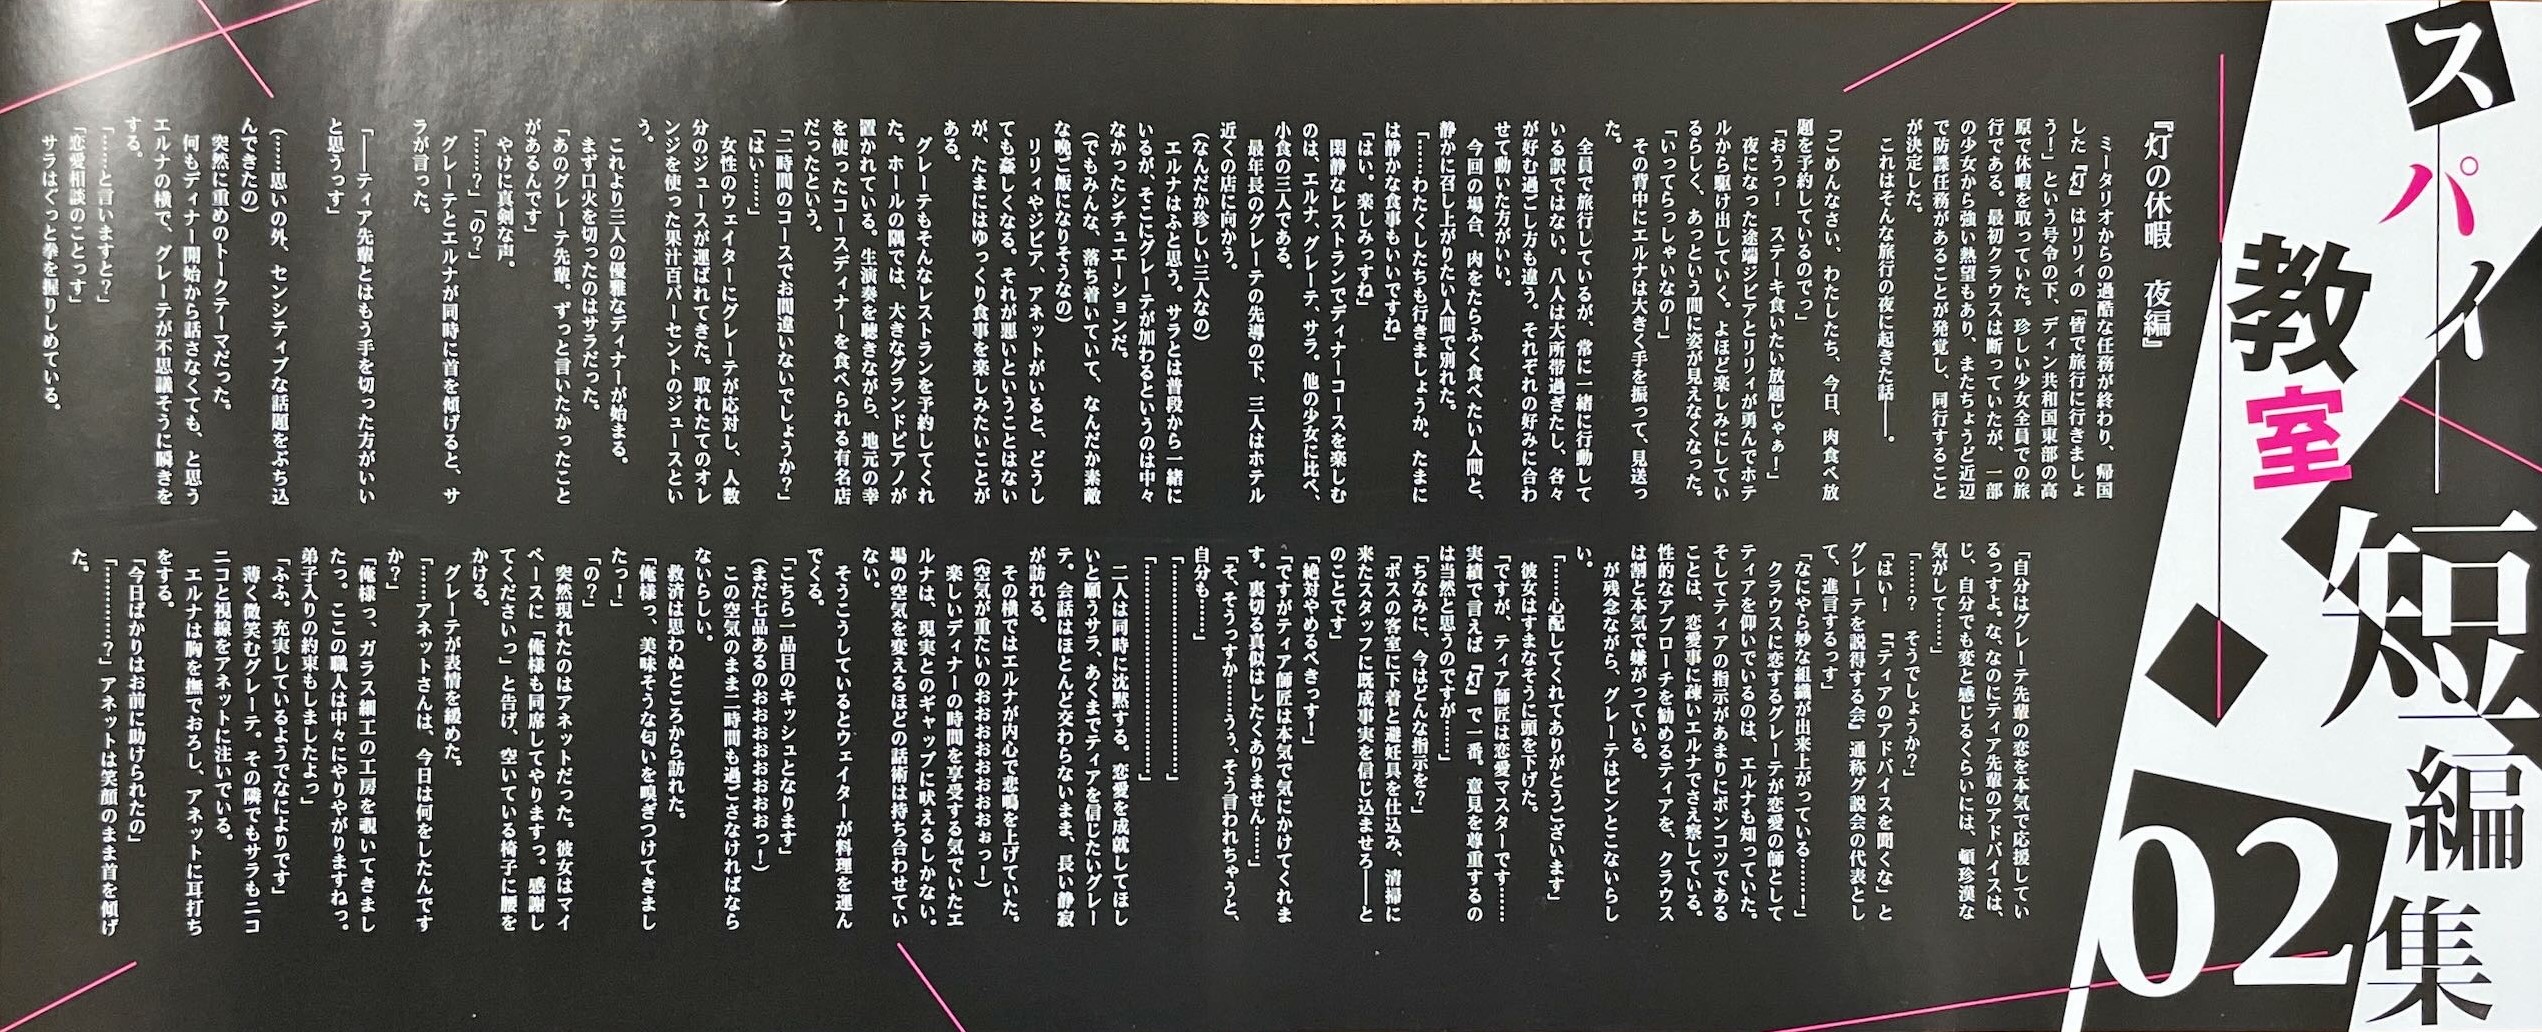 スパイ教室
短編集
02
『灯の休暇　夜編』
　ミータリオからの過酷な任務が終わり、帰国
した『灯』はリリィの「皆で旅行に行きましょ
う！」という号令の下、ディン共和国東部の高
原で休暇を取っていた。珍しい少女全員での旅
行である。最初クラウスは断っていたが、一部
の少女から強い熱望もあり、またちょうど近辺
で防諜任務があることが発覚し、同行すること
が決定した。
　これはそんな旅行の夜に起きた話――。
「ごめんなさい、わたしたち、今日、肉食べ放
題を予約しているのでっ」
「おうっ！　ステーキ食いたい放題じゃぁ！」
　夜になった途端ジビアとリリィが勇んでホテ
ルから駆け出していく。よほど楽しみにしてい
るらしく、あっという間に姿が見えなくなった。
「いってらっしゃいなのー」
　その背中にエルナは大きく手を振って、見送っ
た。
　全員で旅行しているが、常に一緒に行動して
いる訳ではない。八人は大所帯過ぎたし、各々
が好む過ごし方も違う。それぞれの好みに合わ
せて動いた方がいい。
　今回の場合、肉をたらふく食べたい人間と、
静かに召し上がりたい人間で別れた。
「……わたくしたちも行きましょうか。たまに
は静かな食事もいいですね」
「はい。楽しみっすね」
　閑静なレストランでディナーコースを楽しむ
のは、エルナ、グレーテ、サラ。他の少女に比べ、
小食の三人である。
　最年長のグレーテの先導の下、三人はホテル
近くの店に向かう。
（なんだか珍しい三人なの）
　エルナはふと思う。サラとは普段から一緒に
いるが、そこにグレーテが加わるというのは中々
なかったシチュエーションだ。
（でもみんな、落ち着いていて、なんだか素敵
な晩ご飯になりそうなの）
　リリィやジビア、アネットがいると、どうし
ても姦しくなる。それが悪いということはない
が、たまにはゆっくり食事を楽しみたいことが
ある。
　グレーテもそんなレストランを予約してくれ
た。ホールの隅では、大きなグランドピアノが
置かれている。生演奏を聴きながら、地元の幸
を使ったコースディナーを食べられる有名店
だったという。
「二時間のコースでお間違いないでしょうか？」
「はい……」
　女性のウェイターにグレーテが応対し、人数
分のジュースが運ばれてきた。取れたてのオレ
ンジを使った果汁百パーセントのジュースとい
う。
　これより三人の優雅なディナーが始まる。
　まず口火を切ったのはサラだった。
「あのグレーテ先輩。ずっと言いたかったこと
があるんです」
　やけに真剣な声。
「……？」「の？」
　グレーテとエルナが同時に首を傾げると、サ
ラが言った。
「――ティア先輩とはもう手を切った方がいい
と思うっす」
（……思いの外、センシティブな話題をぶち込
んできたの）
　突然に重めのトークテーマだった。
　何もディナー開始から話さなくても、と思う
エルナの横で、グレーテが不思議そうに瞬きを
する。
「……と言いますと？」
「恋愛相談のことっす」
　サラはぐっと拳を握りしめている。
「自分はグレーテ先輩の恋を本気で応援してい
るっすよ。な、なのにティア先輩のアドバイスは、
じ、自分でも変と感じるくらいには、頓珍漢な
気がして……」
「……？　そうでしょうか？」
「はい！　『ティアのアドバイスを聞くな』と
グレーテを説得する会』通称グ説会の代表とし
て、進言するっす」
「なにやら妙な組織が出来上がっている……！」
　クラウスに恋するグレーテが恋愛の師として
ティアを仰いでいるのは、エルナも知っていた。
そしてティアの指示があまりにポンコツである
ことは、恋愛事に疎いエルナでさえ察している。
性的なアプローチを勧めるティアを、クラウス
は割と本気で嫌がっている。
　が残念ながら、グレーテはピンとこないらし
い。
「……心配してくれてありがとうございます」
　彼女はすまなそうに頭を下げた。
「ですが、ティア師匠は恋愛マスターです……
実績で言えば『灯』で一番。意見を尊重するの
は当然と思うのですが……」
「ちなみに、今はどんな指示を？」
「ボスの客室に下着と避妊具を仕込み、清掃に
来たスタッフに既成事実を信じ込ませろ――と
のことです」
「絶対やめるべきっす！」
「ですがティア師匠は本気で気にかけてくれま
す。裏切る真似はしたくありません……」
「そ、そうっすか……うう、そう言われちゃうと、
自分も……」
「……………………………………」
「……………………………………」
　二人は同時に沈黙する。恋愛を成就してほし
いと願うサラ、あくまでティアを信じたいグレー
テ。会話はほとんど交わらないまま、長い静寂
が訪れる。
　その横ではエルナが内心で悲鳴を上げていた。
（空気が重たいのおおおおおおおおおおぉっ！）
　楽しいディナーの時間を享受する気でいたエ
ルナは、現実とのギャップに吠えるしかない。
場の空気を変えるほどの話術は持ち合わせてい
ない。
　そうこうしているとウェイターが料理を運ん
でくる。
「こちら一品目のキッシュとなります」
（まだ七品あるのおおおおおおおおおっ！）
　この空気のまま二時間も過ごさなければなら
ないらしい。
　救済は思わぬところから訪れた。
「俺様っ、美味そうな匂いを嗅ぎつけてきまし
たっ！」
「の？」
　突然現れたのはアネットだった。彼女はマイ
ペースに「俺様も同席してやりますっ。感謝し
てくださいっ」と告げ、空いている椅子に腰を
かける。
　グレーテが表情を緩めた。
「……アネットさんは、今日は何をしたんです
か？」
「俺様っ、ガラス細工の工房を覗いてきまし
たっ。ここの職人は中々にやりやがりますねっ。
弟子入りの約束もしましたよっ」
「ふふ。充実しているようでなによりです」
　薄く微笑むグレーテ。その隣でもサラもニコ
ニコと視線をアネットに注いでいる。
　エルナは胸を撫でおろし、アネットに耳打ち
をする。
「今日ばかりはお前に助けられたの」
「…………？」アネットは笑顔のまま首を傾げ
た。